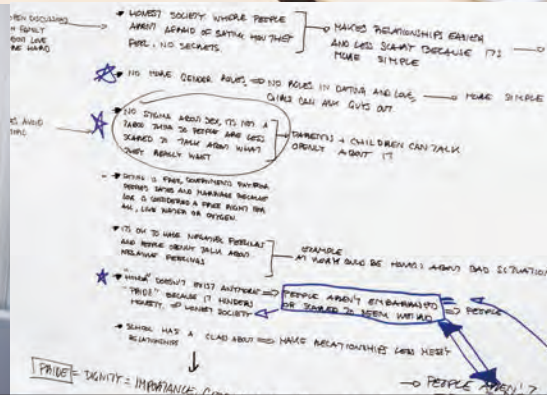 OPEN DISCUSSING
FAMILY
LOVE
ARE HARD
• HONEST SOCIETY WHERE PEOPLE
AREN'T AFRAID OF SAYING HOW THEY
FEEL, NO SECRETS
→ MAKES RELATIONSHIPS EASIER
AND LESS SCARY BECAUSE IT'S
MORE SIMPLE
• NO MORE GENDER ROLES, ⇒ NO ROLES IN DATING AND LOVE,
GIRLS CAN ASK GUYS OUT
→ MORE SIMPLE
AVOID
• NO STIGMA ABOUT SEX, IT'S NOT A
TABOO THING SO PEOPLE ARE LESS
SCARED TO TALK ABOUT WHAT
THEY REALLY WANT
→ PARENTS + CHILDREN CAN TALK
OPENLY ABOUT IT
• DATING IS FREE, GOVERNMENTS PAY FOR
DATES AND MARRIAGE BECAUSE
LOVE IS CONSIDERED A FREE RIGHT FOR
ALL, LIKE WATER OR OXYGEN.
• IT'S OK TO HAVE NEGATIVE FEELINGS
AND PEOPLE OPENLY TALK ABOUT
NEGATIVE FEELINGS
→ EXAMPLE
AT WORK COULD BE HONEST ABOUT BAD SITUATION
• DOESN'T EXIST ANYMORE ⇒
"PRIDE" BECAUSE IT HINDERS
HONESTY, ⇒ HONEST SOCIETY
PEOPLE AREN'T EMBARRASSED
OR SCARED TO SEEM WEIRD
⇒ PEOPLE
• SCHOOL HAS A CLASS ABOUT
RELATIONSHIPS
⇒ MAKE RELATIONSHIPS LESS MESSY
PRIDE = DIGNITY = IMPORTANCE,
→ PEOPLE AREN'T